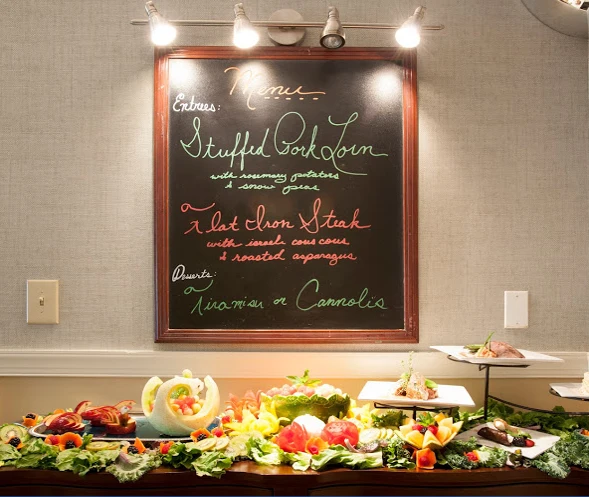 Menu
Entrees:
Stuffed Pork Loin
with rosemary potatoes
& snow peas
Flat Iron Steak
with israeli cous cous
& roasted asparagus
Desserts:
Tiramisu or Cannolis